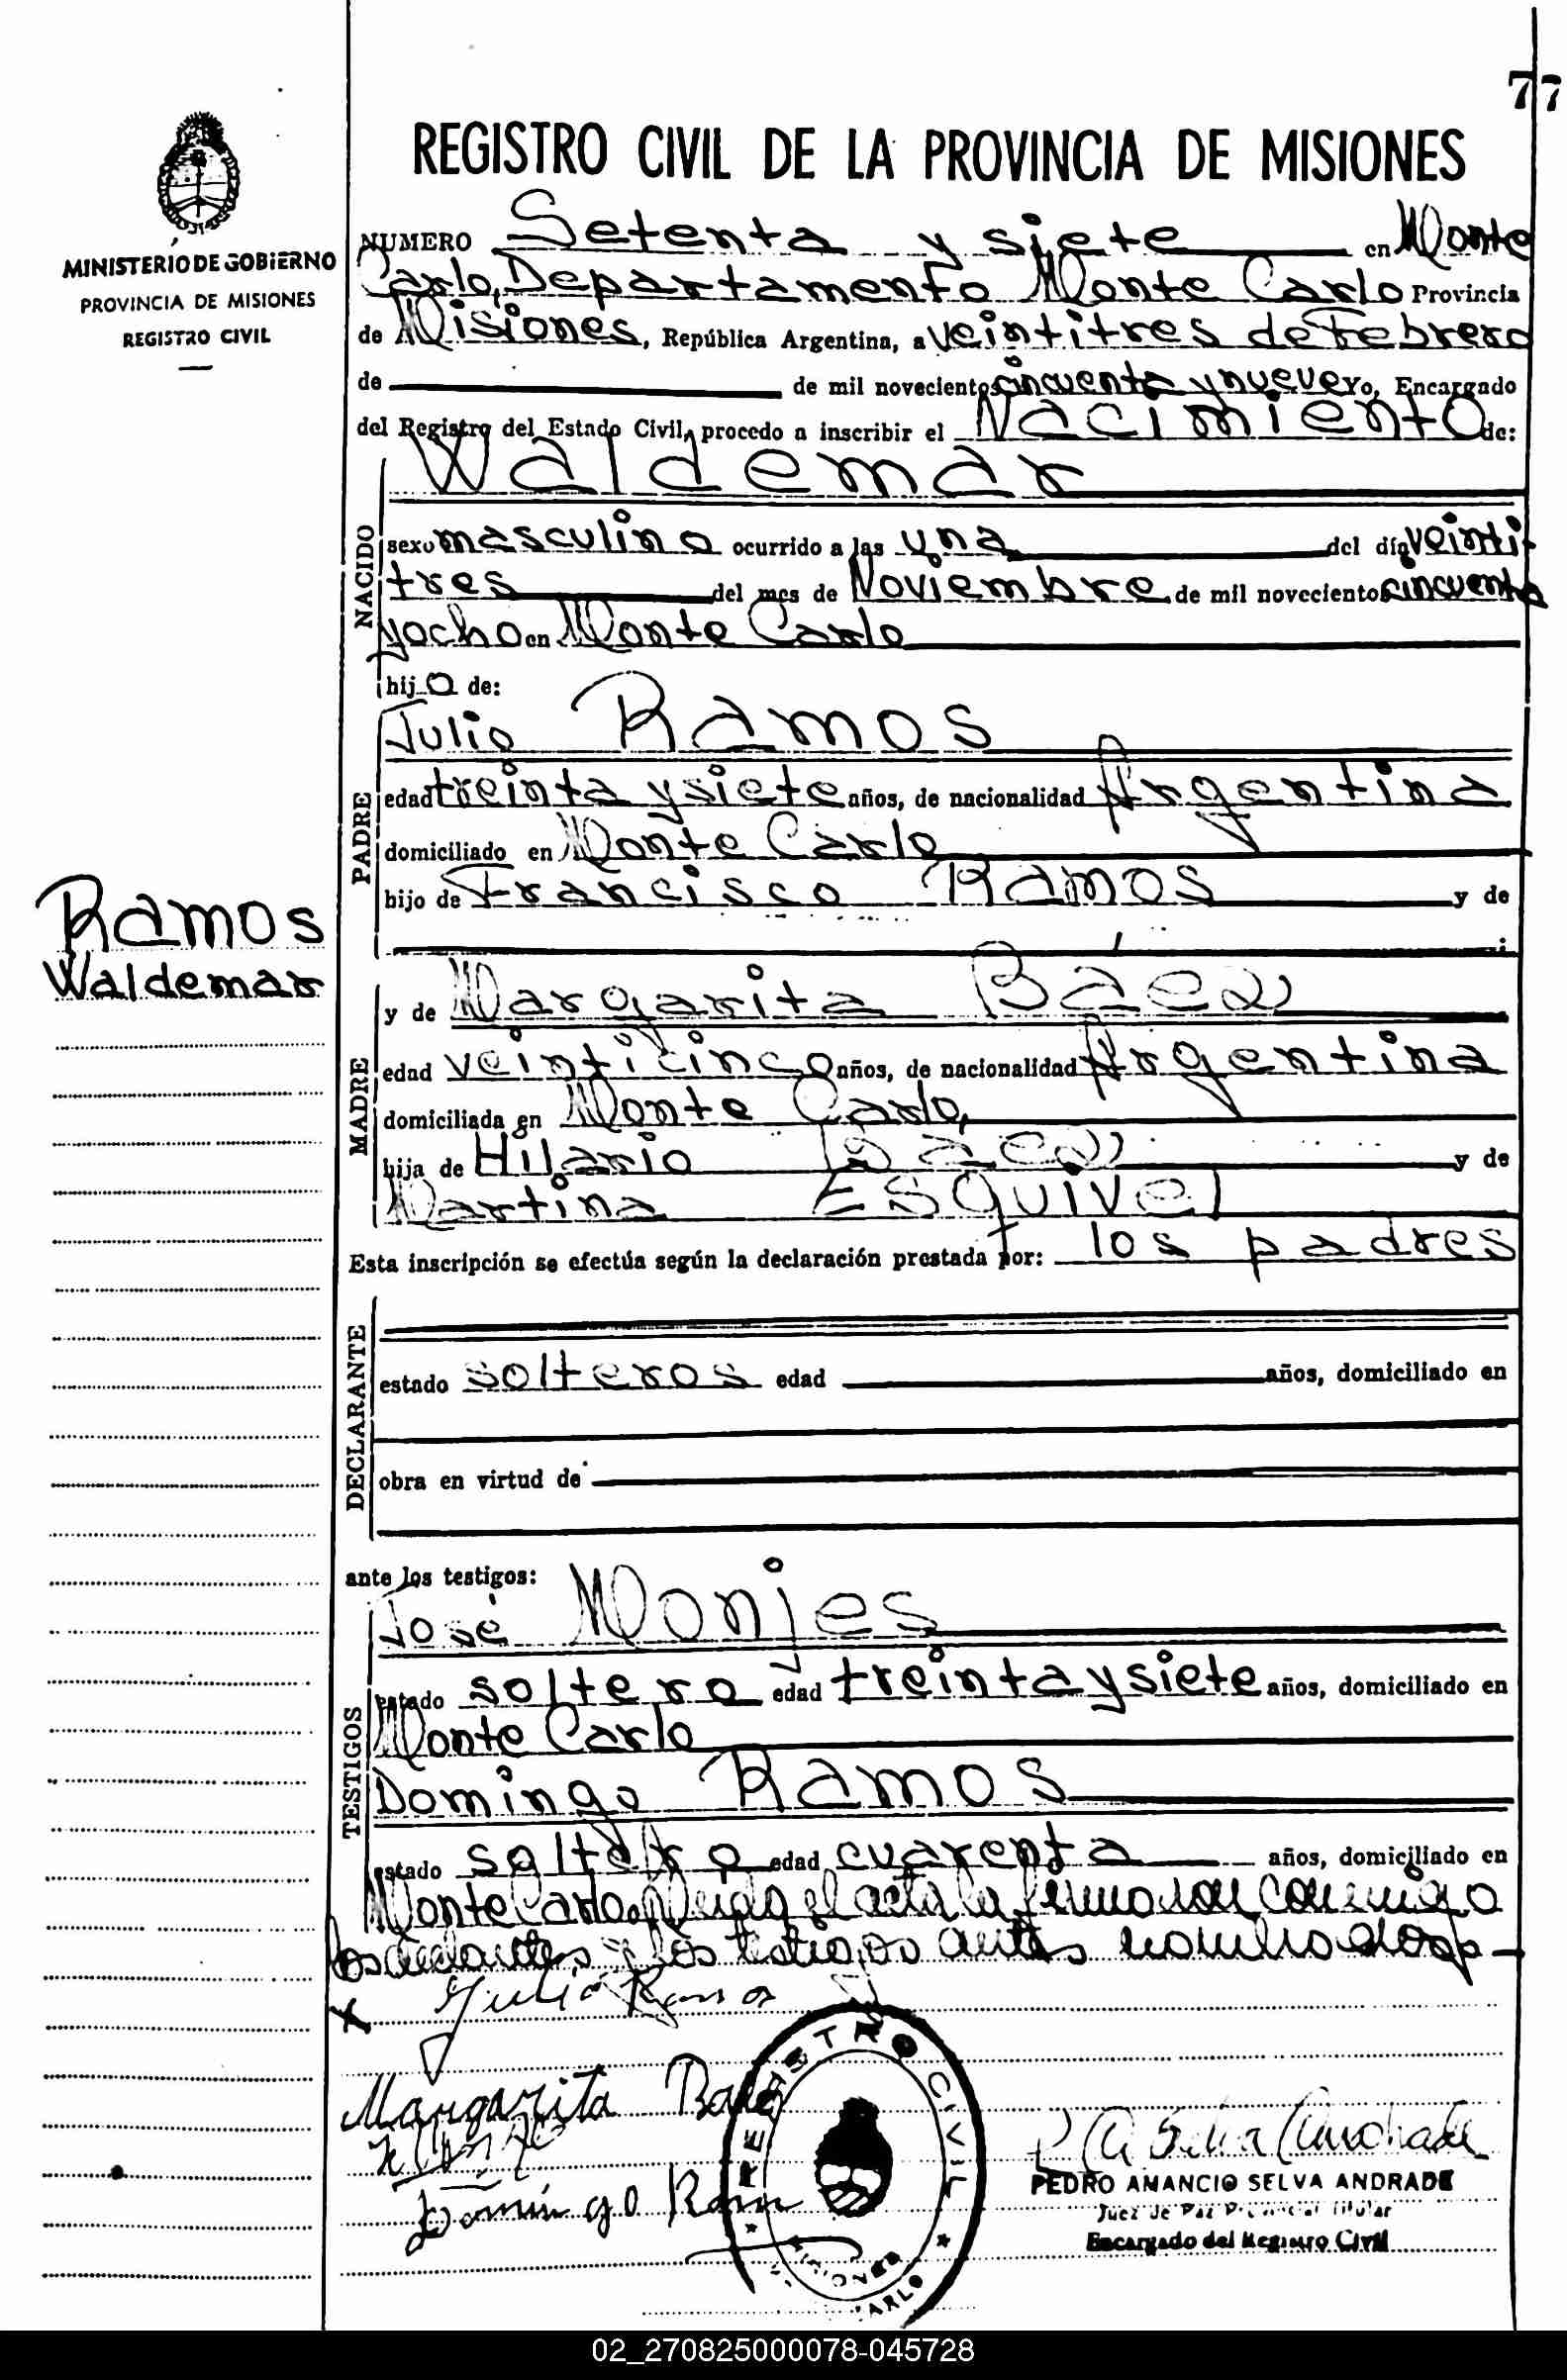 77
REGISTRO CIVIL DE LA PROVINCIA DE MISIONES
MINISTERIO DE GOBIERNO
PROVINCIA DE MISIONES
REGISTRO CIVIL
NUMERO Setenta y siete en Monte
Carlo, Departamento Monte Carlo Provincia
de Misiones, República Argentina, a veintitres de Febrero
de de mil novecientos cincuenta y nueve Yo, Encargado
del Registro del Estado Civil, procedo a inscribir el Nacimiento de:
Waldemar
NACIDO
sexo masculino ocurrido a las una del día veinti-
tres del mes de Noviembre de mil novecientos cincuenta
y ocho en Monte Carlo
hijo de:
Julio Ramos
PADRE
edad treinta y siete años, de nacionalidad Argentina
domiciliado en Monte Carlo
hijo de Francisco Ramos y de
Ramos
Waldemar
y de Margarita Baez
MADRE
edad veinticinco años, de nacionalidad Argentina
domiciliada en Monte Carlo,
hija de Hilario Baez y de
Martina Esquivel
Esta inscripción se efectúa según la declaración prestada por: los padres
DECLARANTE
estado solteros edad años, domiciliado en
obra en virtud de
ante los testigos:
José Monjes
TESTIGOS
estado soltero edad treinta y siete años, domiciliado en
Monte Carlo
Domingo Ramos
estado soltero edad cuarenta años, domiciliado en
Monte Carlo. Leida el acta la firmaron conmigo
los declarantes y los testigos antes nombrados
Julio Ramos
Margarita Baez
Domingo Ramos
REGISTRO CIVIL
MISIONES
CARLO
PEDRO AMANCIO SELVA ANDRADE
Juez de Paz Provincial Titular
Encargado del Registro Civil
02_270825000078-045728